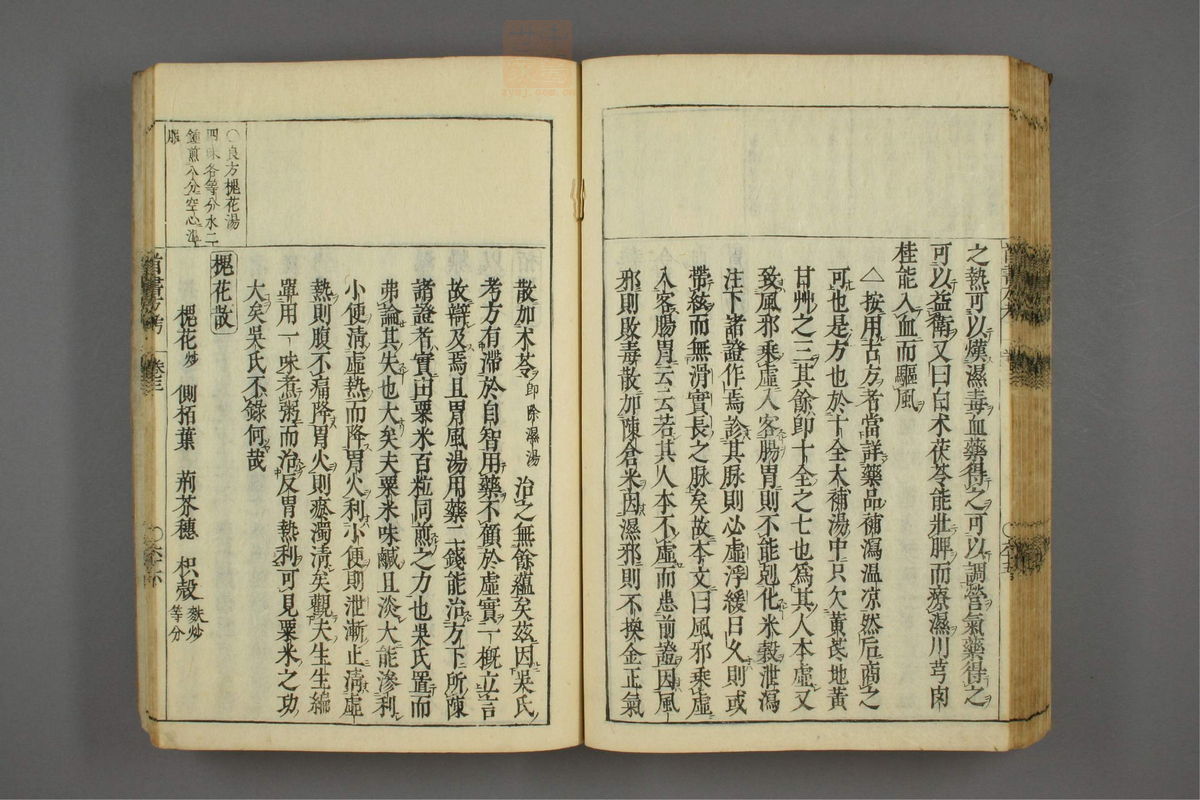 之熱可以爍濕毒血藥得之可以調營氣藥得之
可以益衛又曰白术茯苓能壯脾而療濕川芎肉
桂能入血而驅風
△按用古方者當詳藥品補瀉温凉然后商之
可也是方也於十全大補湯中只欠黄芪地黄
甘艸之三其餘即十全之七也爲其人本虛又
致風邪乘虛入客腸胃則不能剋化米穀泄瀉
注下諸證作焉診其脉則必虛浮緩日久則或
帶弦而無滑實長之脉矣故本文曰風邪乘虛
入客腸胃云云若其人本不虛而患前證因風
邪則敗毒散加陳倉米因濕邪則不換金正氣
散加术苓即除濕湯治之無餘蘊矣茲因吳氏
考方有滯於自智用藥不顧於虛實一概立言
故辯及焉且胃風湯用藥二錢能治方下所陳
諸證者實由粟米百粒同煎之力也吳氏置而
弗論其失也大矣夫粟米味鹹且淡大能滲利
小便清虛熱而降胃火利小便則泄漸止清虛
熱則腹不痛降胃火則瘀濁清矣觀夫生生編
單用一味煮粥而治反胃熱利可見粟米之功
大矣吳氏不錄何哉
槐花散
槐花炒 側栢葉 荊芥穗 枳殼麩炒等分
〇良方槐花湯
四味各等分水二
鍾煎八分空心溫
服
卷三
〇六十五
〇六十六